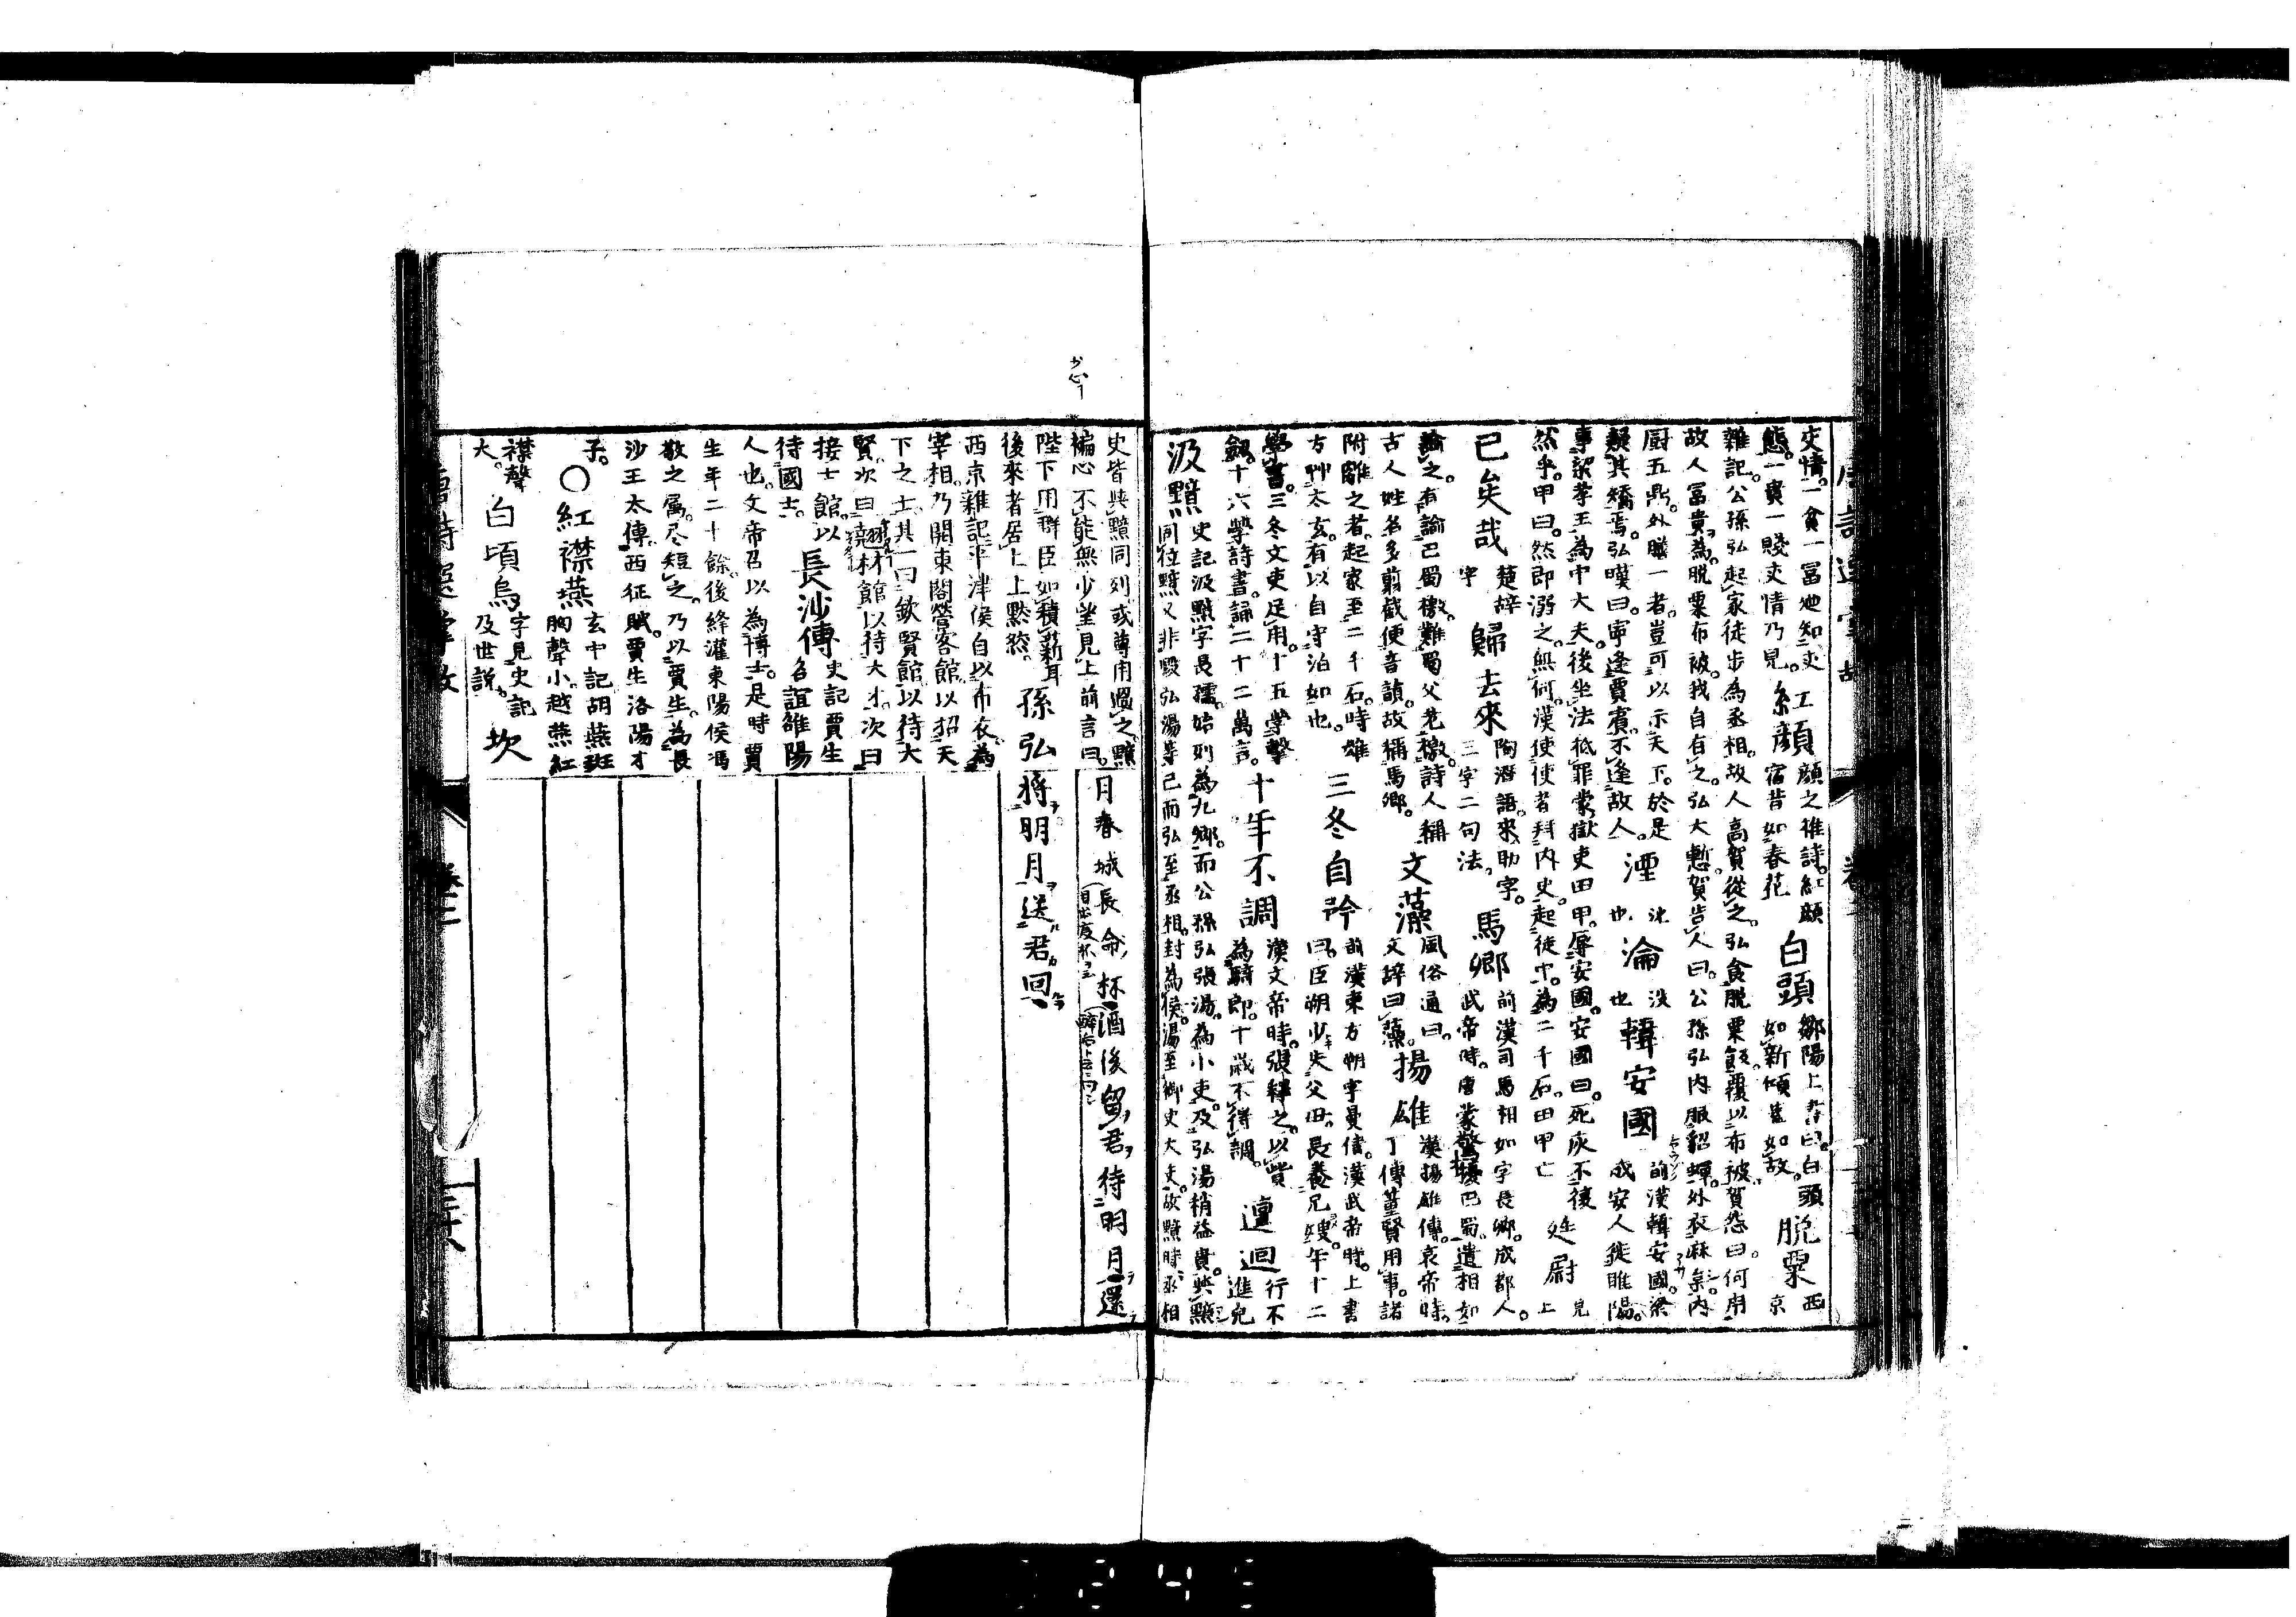 交情。一貧一富廼知交
態。一貴一賤交情乃見。
紅顔
顔之推詩。紅顔
宿昔如春花
白頭
鄒陽上書曰。白頭
如新傾蓋如故。
脱粟
西京
雜記。公孫弘起家徒歩為丞相。故人高賀從之。弘食脱粟飯。覆以布被。賀怨曰。何用
故人冨貴。為。脱粟布被。我自有之。弘大慙。賀告人曰。公孫弘内服貂蟬。外衣麻枲。内
厨五鼎。外膳一肴。豈可以示天下。於是
疑其矯焉。弘嘆曰。寧逢惡賓。不逢故人。
湮
沈
也
淪
没
也
韓安國
前漢韓安國。梁
成安人徙睢陽。
事梁孝王為中大夫。後坐法抵罪。蒙獄吏田甲。辱安國。安國曰。死灰不復
然乎。甲曰。然即溺之。無何。漢使使者拜内史。起徒中。為二千石。田甲亡
廷尉
見
上
已矣哉
楚辞
字
歸去來
陶潜語。來助字。
三字二句法。
馬卿
前漢司馬相如字長卿。成都人。
武帝時。唐蒙驚擾巴蜀。遣相如
論之。有諭巴蜀檄。難蜀父老檄。詩人稱
古人姓名多剪截便音韻。故稱馬卿。
文藻
風俗通曰。
文辞曰藻。
揚雄
漢揚雄傳。哀帝時。
丁傳董賢用事。諸
附離之者。起家至二千石。時雄
方艸太玄。有以自守泊如也。
三冬自矜
前漢東方朔字曼倩。漢武帝時。上書
曰。臣朔少失父母。長養兄嫂。年十二
學書。三冬文吏足用。十五學擊
劔。十六學詩書。誦二十二萬言。
十年不調
漢文帝時。張釋之。以貲
為騎郎。十歳不得調。
邅迴
行不
進皃
汲黯
史記汲黯字長孺。始列為九卿。而公孫弘張湯。為小吏。及弘湯稍益貴。與黯
同位。黯又非毀弘湯等。已而弘至丞相。封為侯。湯至御史大夫。故黯時丞相
史皆與黯同列。或尊用過之。黯
褊心不能無少望。見上前言曰。
陛下用群臣。如積薪耳
後來者居上。上黙然。
孫弘
西京雜記。平津侯自以布衣。為
宰相。乃開東閣。營客館。以招天
下之士。其一曰欽賢館。以待大
賢。次曰翹材館。以待大才。次曰
接士館。以
待國士。
長沙傳
史記賈生
名誼。雒陽
人也。文帝召以為博士。是時賈
生年二十餘。後絳灌東陽侯馮
敬之属。尽短之。乃以賈生。為長
沙王太傳。西征賦。賈生洛陽才
子。
○紅襟燕
玄中記胡燕斑
胸聲小。越燕紅
襟聲
大。
白項烏
字見史記
及世説。
坎
月春城長命杯酒後留君待明月還
將明月送君回